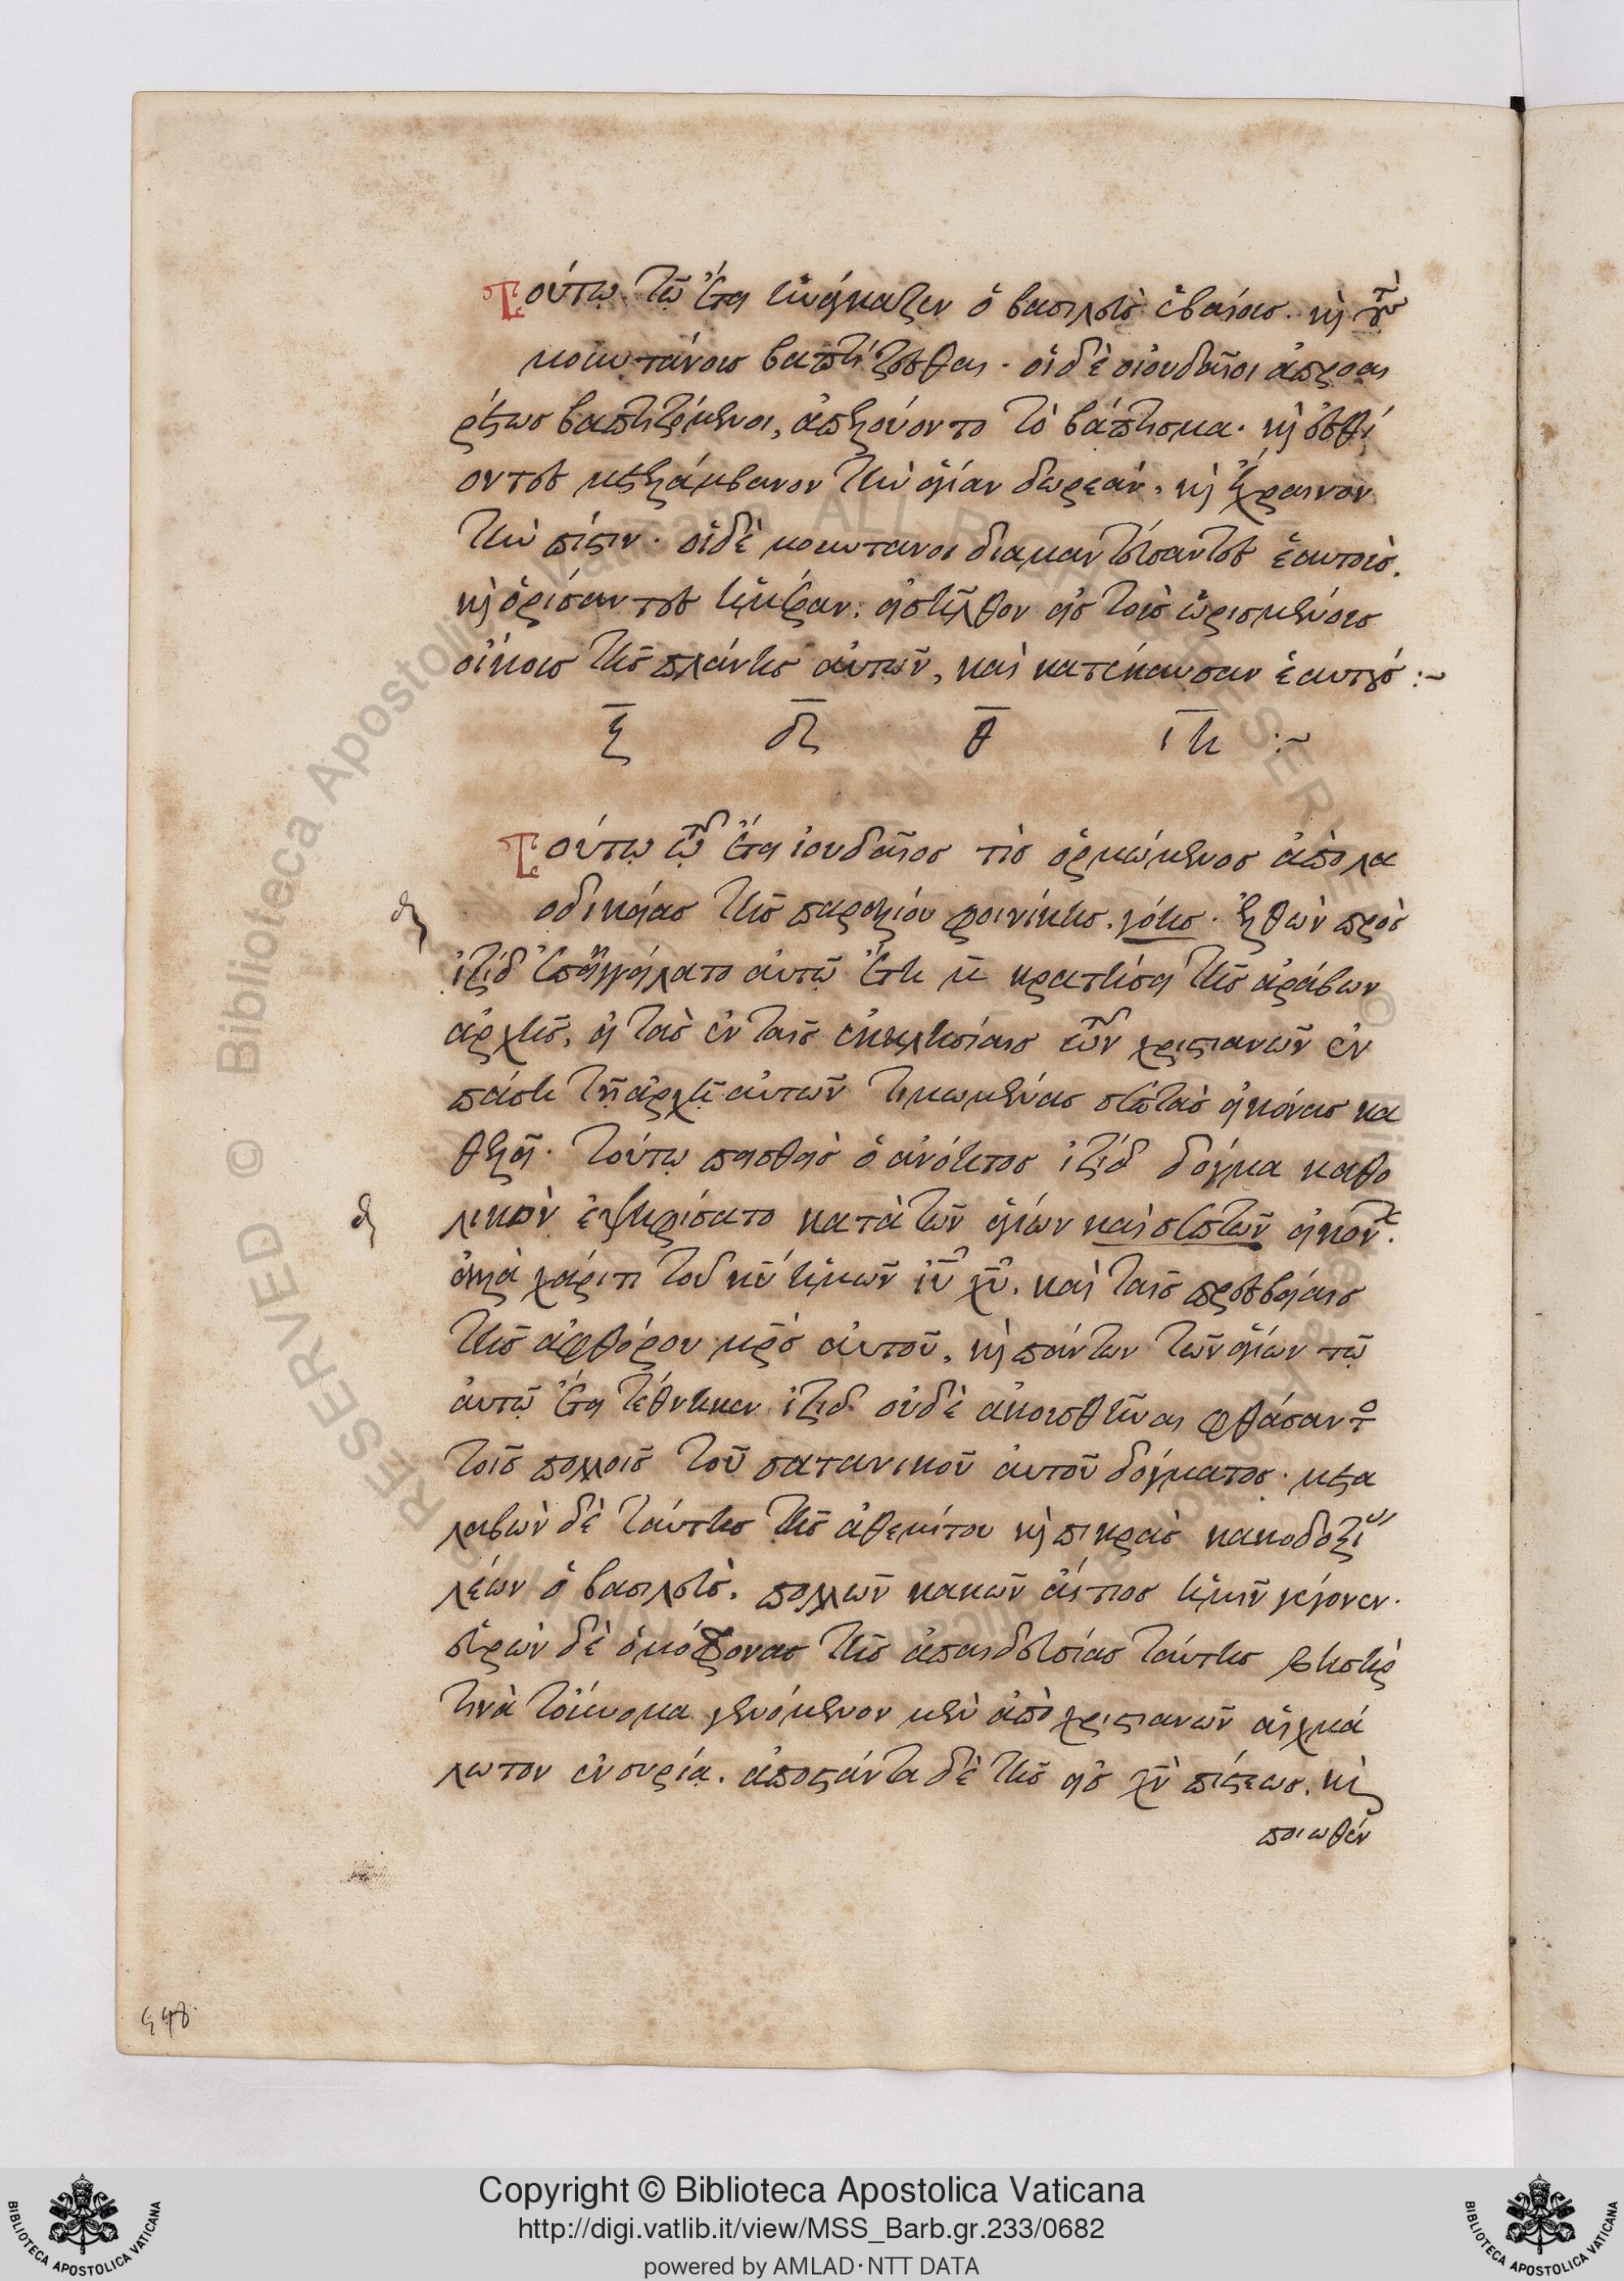 Τούτῳ τῷ ἔτει ἠνάγκαζεν ὁ βασιλεὺς ἑβαίοις. καὶ τοὺς
μοντανοὺς βαπτίζεσθαι. οἱ δὲ ἰουδαῖοι ἀπροαι
ρέτως βαπτιζόμενοι, ἀπελούοντο τὸ βάπτισμα. καὶ ἐσθί
οντες μετελάμβανον τὴν ἁγίαν δωρεάν, καὶ ἔχραινον
τὴν πίστιν. οἱ δὲ μοντανοι διαμαντεύσαντες ἑαυτοῖς.
καὶ ὁρίσαντες ἡμέραν. εἰσῆλθον εἰς τοὺς ὡρισμένους
οἴκους τῆς πλάνης αὐτῶν, καὶ κατέκαυσαν ἑαυτούς :~
ζ δζ θ ιη :~
Τούτῳ τῷ ἔτει ἰουδαῖος τὶς ὁρμώμενος ἀπὸ λα
οδικείας τῆς παραλίου φοινίκης. γόης. ἐλθὼν πρὸς
ἰζίδ ἐπηγγείλατο αὐτῷ ἔτη μ κρατήσει τῆς ἀράβων
ἀρχῆς, εἰ τὰς ἐν ταῖς ἐκκλησίαις τῶν χριστιανῶν ἐν
πάσῃ τῇ ἀρχῇ αὐτῶν τιμωμένας σεπτὰς εἰκόνας κα
θελεῖ. τούτῳ πεισθεὶς ὁ ἀνόητος ἰζίδ δόγμα καθο
λικὸν ἐψηφίσατο κατὰ τῶν ἁγίων καὶ σεπτῶν εἰκόν.
ἀλλὰ χάριτι τοῦ κυ ἡμῶν ιυ χυ. καὶ ταῖς πρεσβείαις
τῆς ἀφθόρου μρς αὐτοῦ, καὶ πάντων τῶν ἁγίων τῷ
αὐτῷ ἔτει τέθνηκεν ἰζιδ οὐδὲ ἀκουσθῆναι φθάσαντο
τοῖς πολλοῖς τοῦ σατανικοῦ αὐτοῦ δόγματος. μετα
λαβὼν δὲ ταύτης τῆς ἀθεμίτου καὶ πικρᾶς κακοδοξί
λέων ὁ βασιλεὺς. πολλῶν κακῶν αἴτιος ἡμῖν γέγονεν.
εὑρὼν δὲ ὁμόφρονας τῆς ἀπαιδευσίας ταύτης βησὴρ
τινὰ τοὔνομα γενόμενον μὲν ἀπὸ χριστιανῶν αἰχμά
λωτον ἐν συρίᾳ. ἀποστάντα δὲ τῆς εἰς χν πίστεως. καὶ
ποιωθέν
Copyright © Biblioteca Apostolica Vaticana
http://digi.vatlib.it/view/MSS_Barb.gr.233/0682
powered by AMLAD·NTT DATA